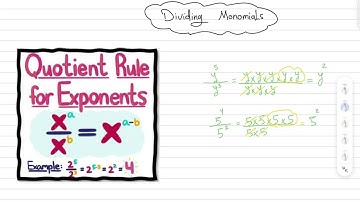 Dividing Monomials
Quotient Rule
for Exponents
x^a / x^b = x^(a-b)
Example: 2^5 / 2^3 = 2^(5-3) = 2^2 = 4
y^5 / y^3 = y×y×y×y×y / y×y×y = y^2
5^4 / 5^2 = 5×5×5×5 / 5×5 = 5^2